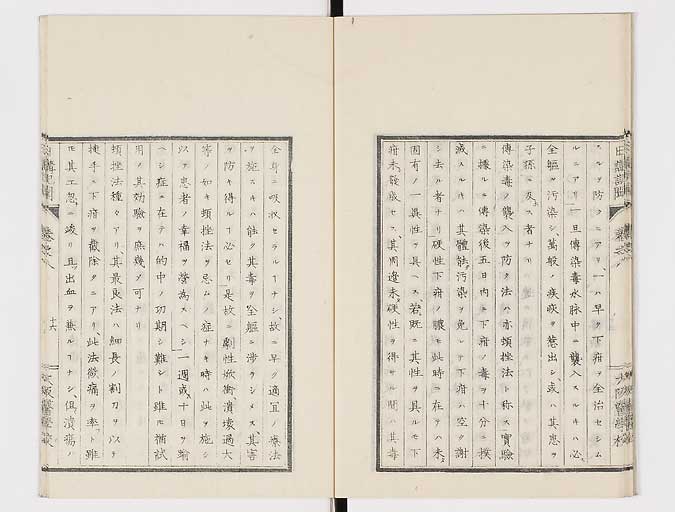 スルヲ防クニアリ、一ハ早ク下疳ヲ全治セシム
ルニアリ、一旦傳染毒水脉中ニ襲入スルキハ必
全軀ヲ汚染シ、萬般ノ疾疢ヲ惹出シ、或ハ其患ヲ
子孫ニ及ス者ナリ
傳染毒ノ襲入ヲ防ク法ハ亦頓挫法ト称ス實驗
ニ據ルニ傳染後五日内ニ下疳ノ毒ヲ十分ニ撲
滅スルキハ其體能ク汚染ヲ免レテ下疳ハ空ク謝
シ去ル者ナリ、硬性下疳ノ膿モ此時ニ在テハ未
固有ノ一異性ヲ具ヘス、若既ニ其性ヲ具ルモ下
疳未發硬セス、其周邊未硬性ヲ得サル間ハ其毒
全身ニ吸收セラルヽナシ、故ニ早ク適宜ノ療法
ヲ施スキハ能ク其毒ヲ全軀ニ渉ラシメス、其害
ヲ防キ得ル必セリ、是故ニ劇性焮衝潰壊過大
等ノ如キ頓挫法ヲ忌ムノ症ナキ時ハ此ヲ施シ
以テ患者ノ幸福ヲ營為スヘシ、一週或十日ヲ踰
ヘシ症ニ在テハ的中ノ功期シ難シト雖モ補試
用ノ其効驗ヲ庶幾ノ可ナリ
頓挫法種々アリ、其最良法ハ細長ノ割刀ヲ以テ
捷手ニ下疳ヲ截除クニアリ、此法徴痛ヲ率ト雖
モ其工忽ニ竣リ且出血ヲ無ルナシ、俱潰瘍ハ
十六
大阪醫學校
大阪醫學校